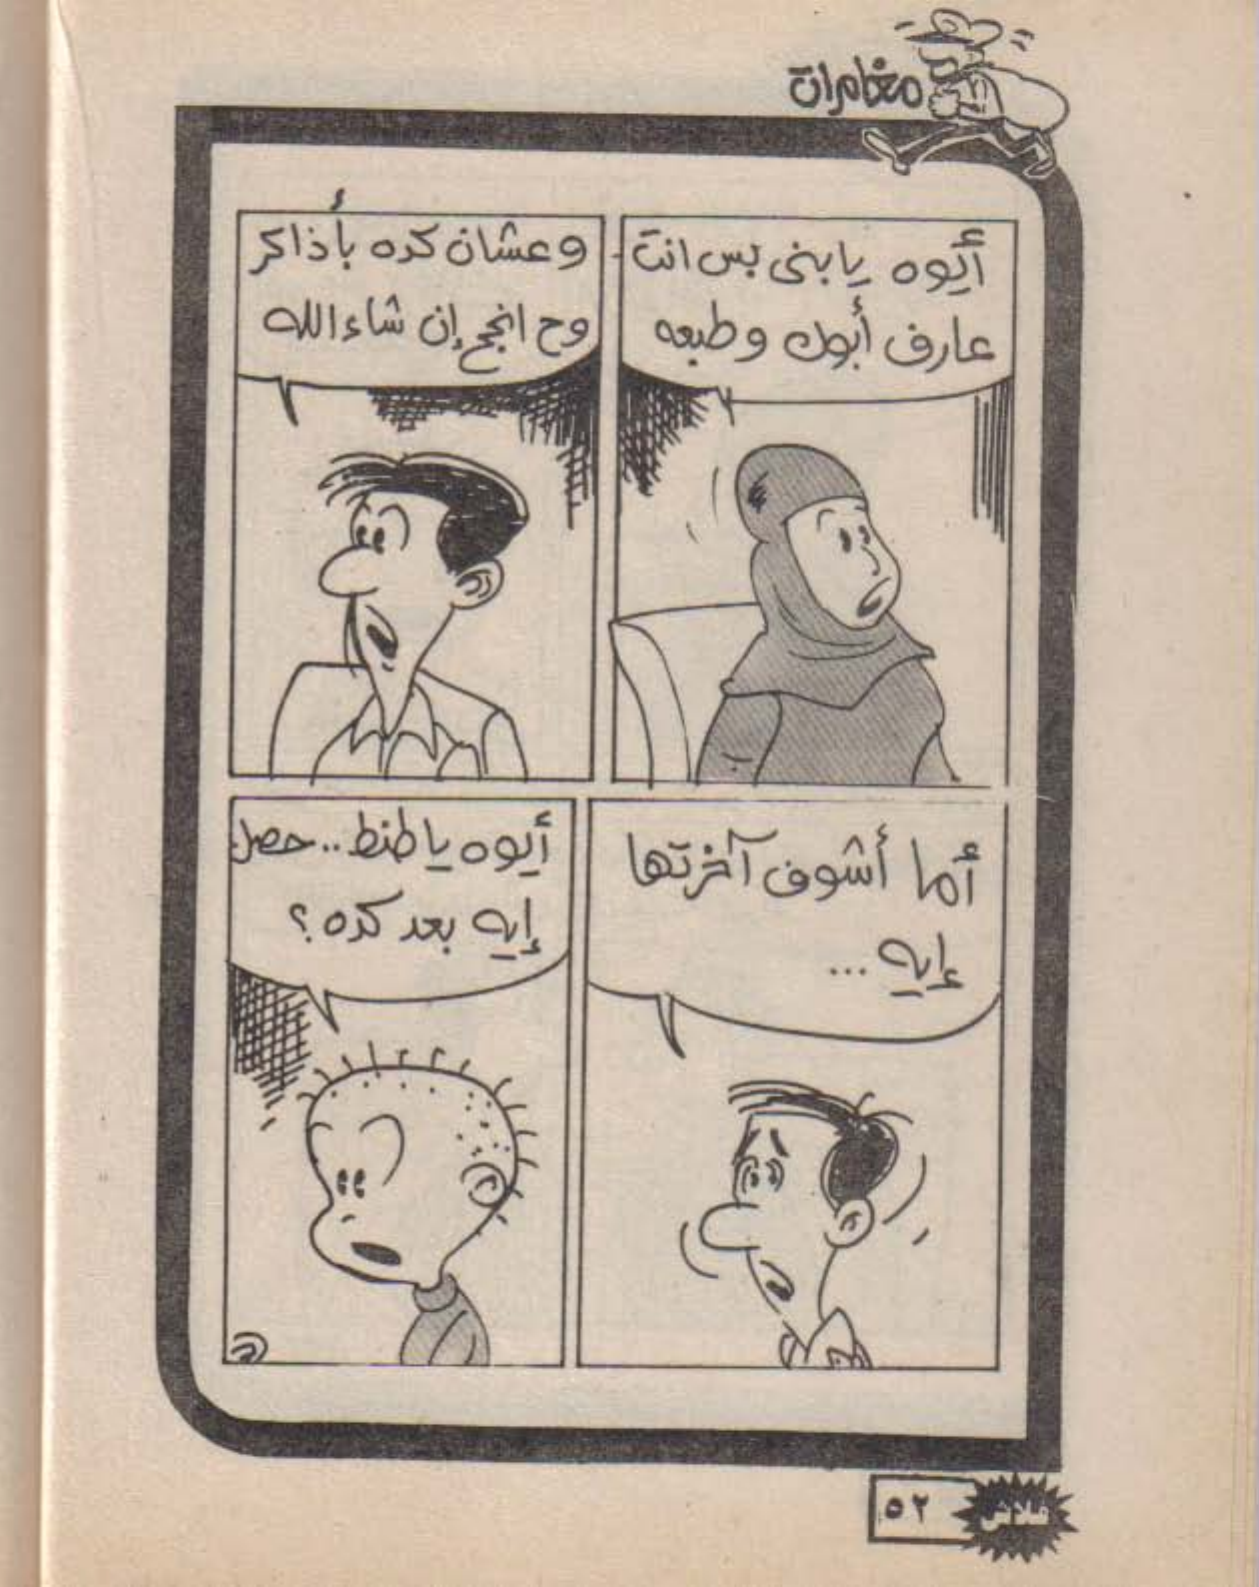 مغامرات
أيوه يا بنى بس انت
عارف أبوك وطبعه
وعشان كده بأذاكر
وح انجح إن شاء الله
أما أشوف آخرتها
إيه ...
أيوه يا طنط.. حصل
إيه بعد كده؟
٥٢
فلاش